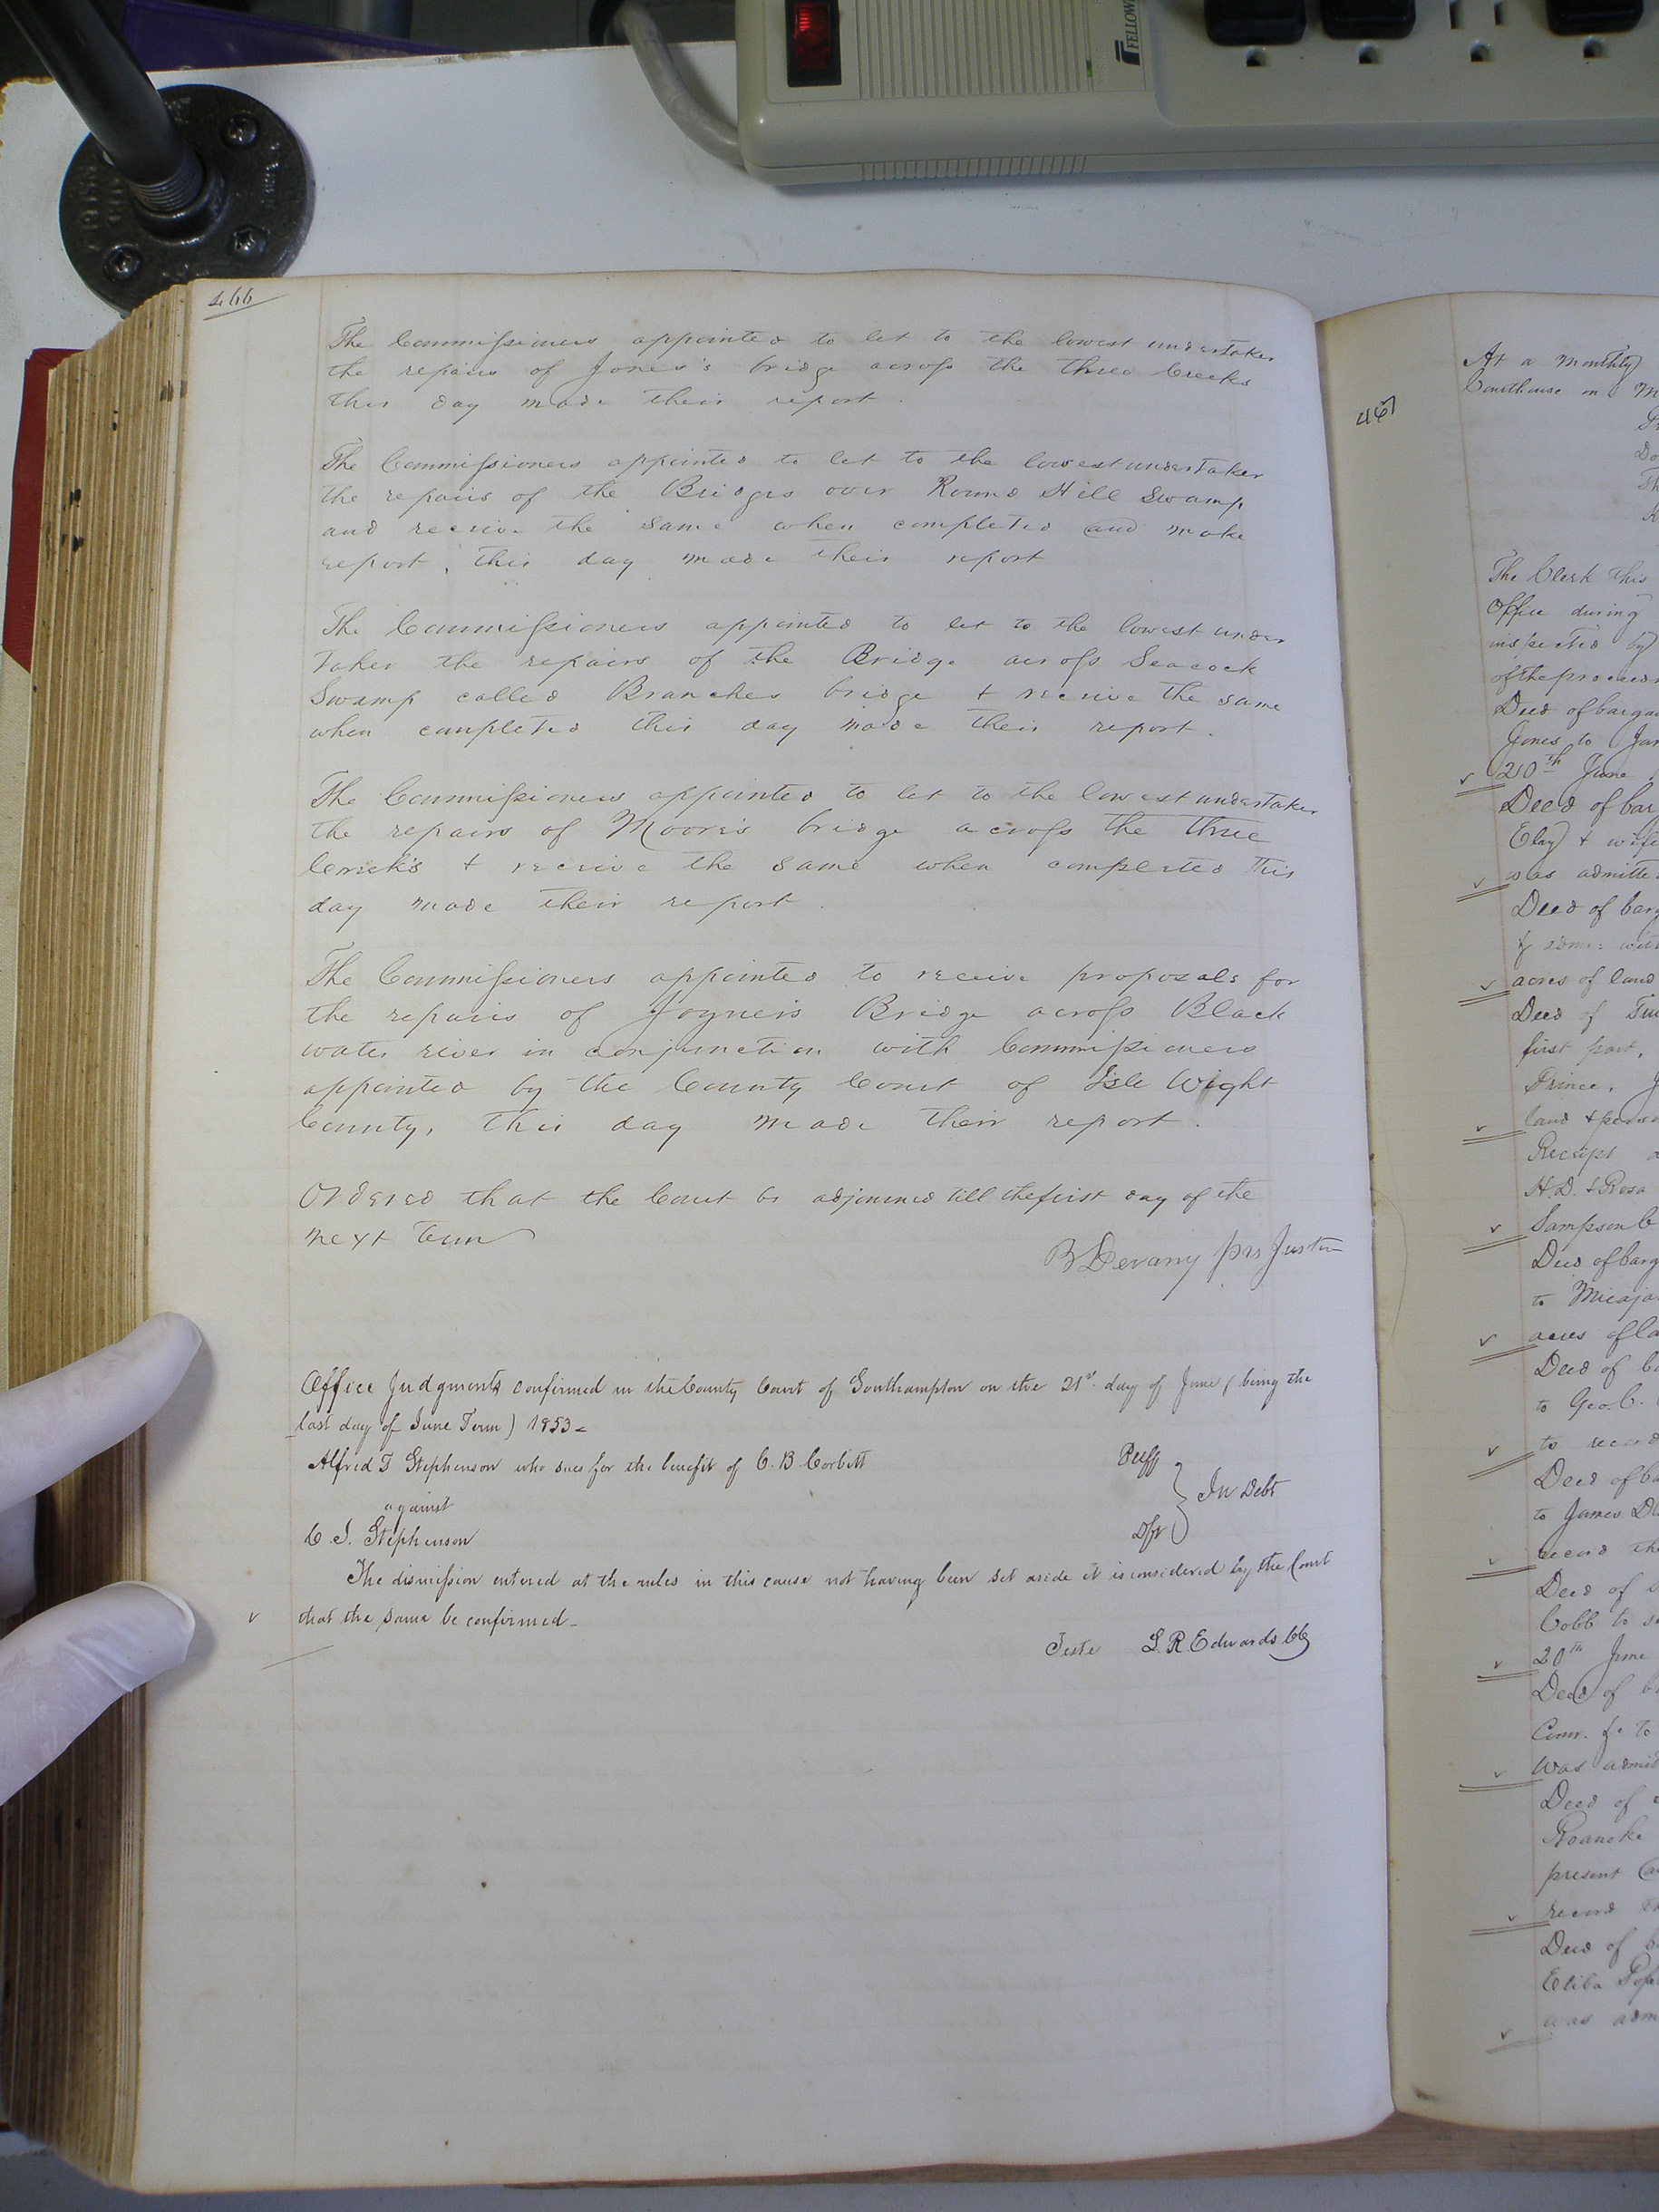 FELLOW
466
The Commissioners appointed to let to the lowest undertaker
the repairs of Jones's bridge across the three Creeks
this day made their report.
The Commissioners appointed to let to the lowest undertaker
the repairs of the Bridges over Round Hill Swamp
and receive the same when completed and make
report, this day made their report
The Commissioners appointed to let to the lowest under
taker the repairs of the Bridge across Seacock
Swamp called Branches bridge & receive the same
when completed this day made their report.
The Commissioners appointed to let to the lowest undertaker
the repairs of Moore's bridge across the three
Creek's & receive the same when completed this
day made their report.
The Commissioners appointed to receive proposals for
the repairs of Joyner's Bridge across Black
water river in conjunction with Commissioners
appointed by the County Court of Isle Wight
County, this day made their report.
Ordered that the Court be adjourned till the first day of the
next Term
B Devany prs Justice
Office Judgments confirmed in the County Court of Southampton on the 21st day of June (being the
last day of June Term) 1853
Alfred T Stephenson who sues for the benefit of C. B. Corbitt Plff
against In Debt
C. J. Stephenson Dft
The dismission entered at the rules in this cause not having been set aside it is considered by the Court
that the same be confirmed
Teste L. R. Edwards Clk
467
At a monthly
Courthouse on M
The Clerk this
Office during
inspected by
of the proceed
Deed of barga
Jones to Jam
20th June
Deed of bar
Clay & wife
was admitte
Deed of barg
acres of land
Deed of Tru
first part,
Prince, J
land & perso
Receipt
H.D. & Rosa
Sampson C
Deed of barg
to Micaja
acres of la
Deed of ba
to Geo. C.
to record
Deed of ba
to James D
record the
Deed of
Cobb to
20th June
Deed of b
Comr. &c to
was admit
Deed of
Roanoke
present
record
Deed of b
was adm